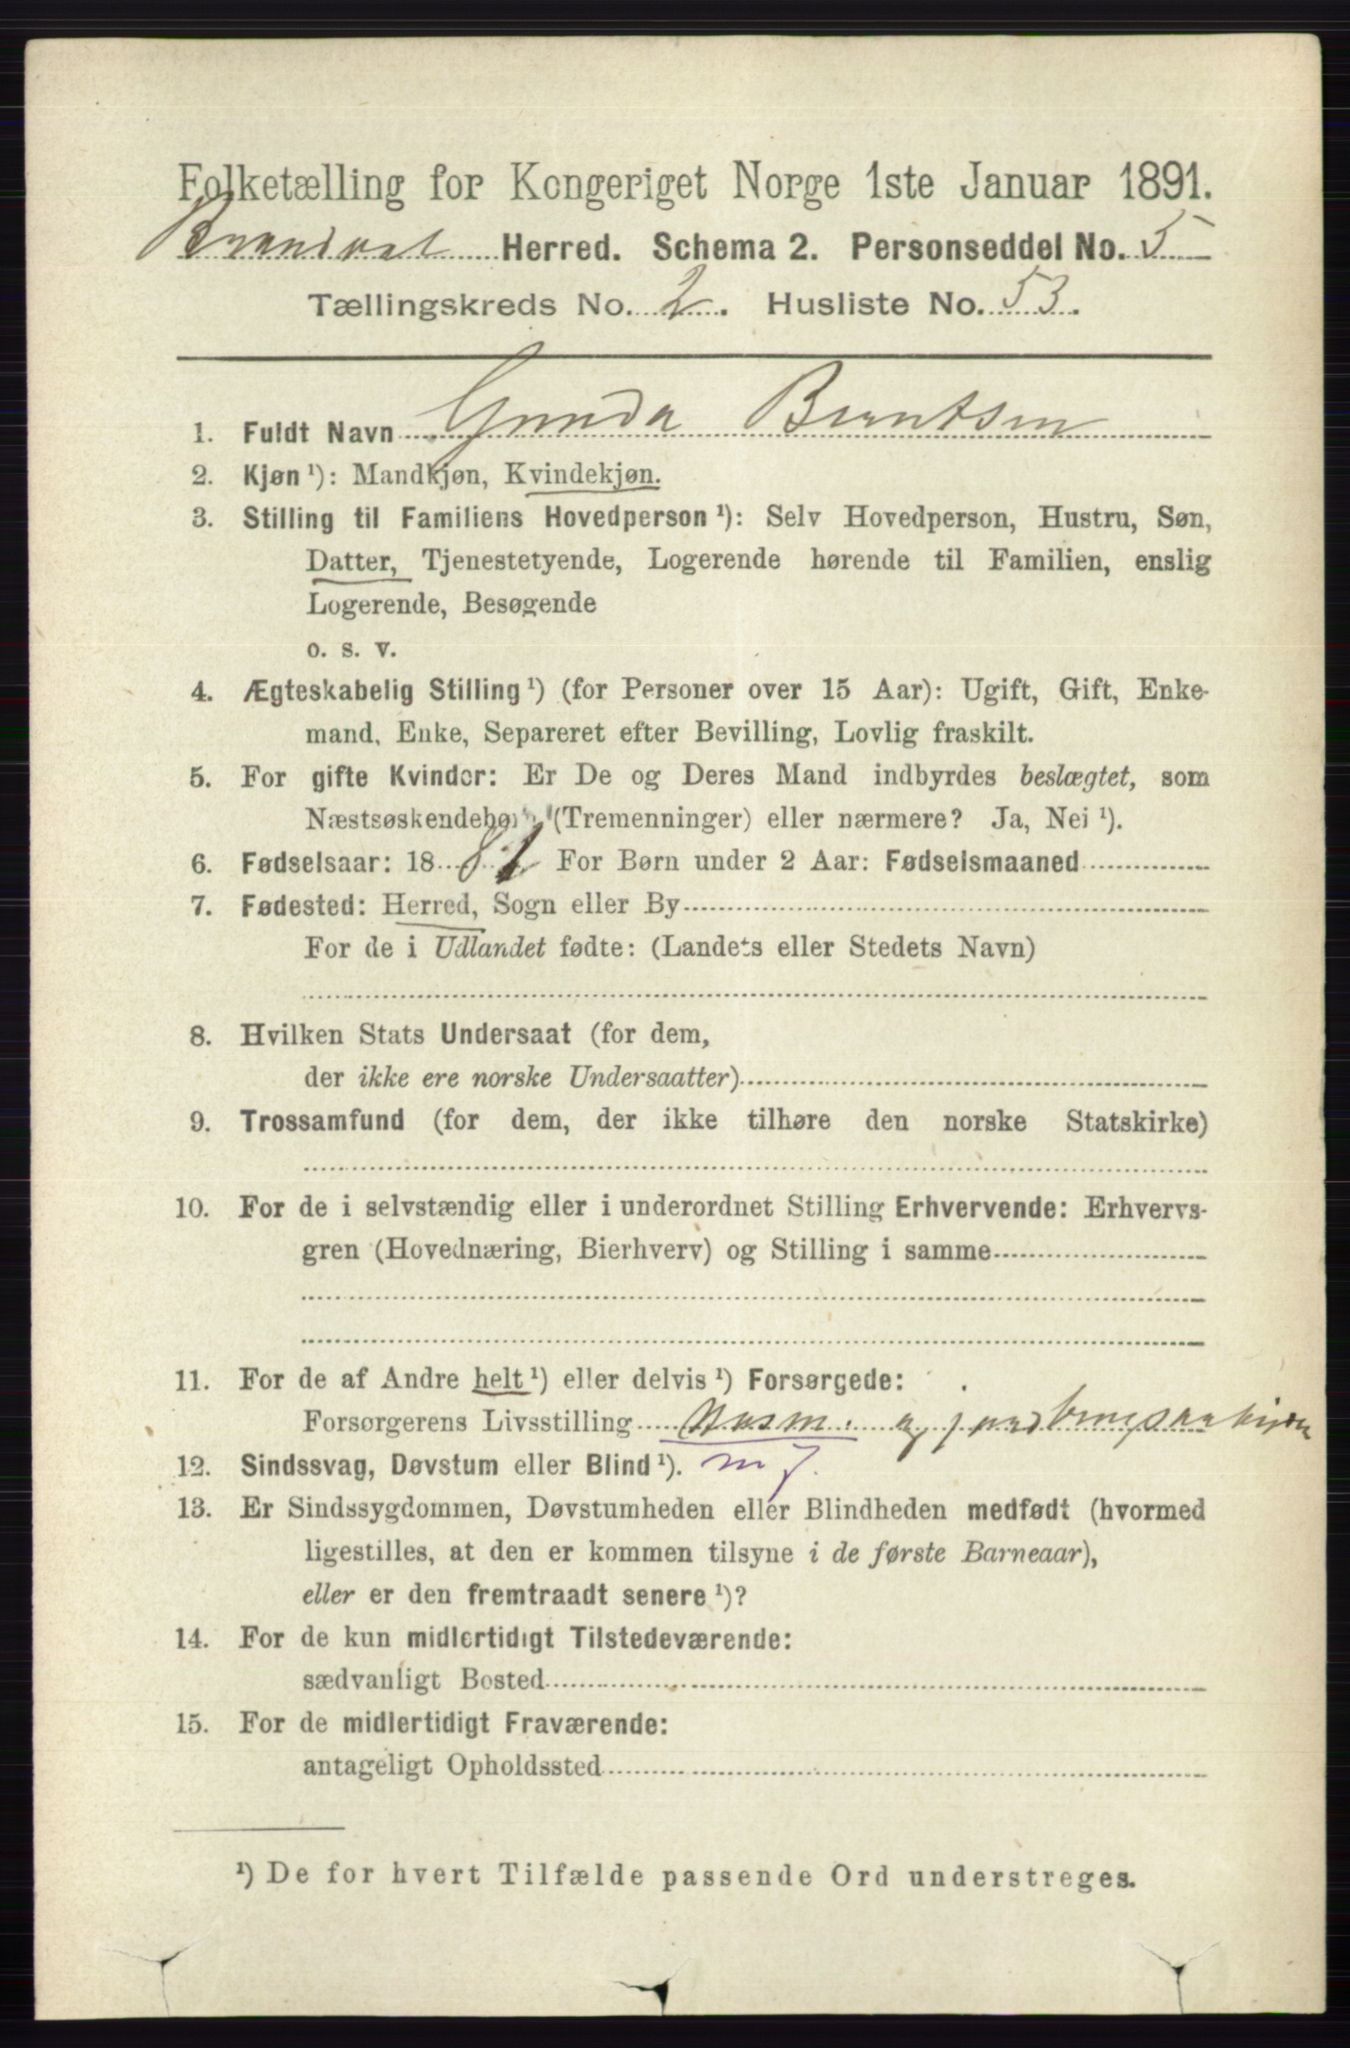 Folketælling for Kongeriget Norge 1ste Januar 1891.
Brandval Herred. Schema 2. Personseddel No. 5
Tællingskreds No. 2. Husliste No. 53.
1. Fuldt Navn Gunda Berntsen
2. Kjøn ¹): Mandkjøn, Kvindekjøn.
3. Stilling til Familiens Hovedperson ¹): Selv Hovedperson, Hustru, Søn,
Datter, Tjenestetyende, Logerende hørende til Familien, enslig
Logerende, Besøgende
o. s. v.
4. Ægteskabelig Stilling ¹) (for Personer over 15 Aar): Ugift, Gift, Enke-
mand, Enke, Separeret efter Bevilling, Lovlig fraskilt.
5. For gifte Kvinder: Er De og Deres Mand indbyrdes beslægtet, som
Næstsøskendebørn (Tremenninger) eller nærmere? Ja, Nei ¹).
6. Fødselsaar: 1881 For Børn under 2 Aar: Fødselsmaaned
7. Fødested: Herred, Sogn eller By
For de i Udlandet fødte: (Landets eller Stedets Navn)
8. Hvilken Stats Undersaat (for dem,
der ikke ere norske Undersaatter)
9. Trossamfund (for dem, der ikke tilhøre den norske Statskirke)
10. For de i selvstændig eller i underordnet Stilling Erhvervende: Erhvervs-
gren (Hovednæring, Bierhverv) og Stilling i samme
11. For de af Andre helt ¹) eller delvis ¹) Forsørgede:
Forsørgerens Livsstilling Husm. og
12. Sindssvag, Døvstum eller Blind ¹).
13. Er Sindssygdommen, Døvstumheden eller Blindheden medfødt (hvormed
ligestilles, at den er kommen tilsyne i de første Barneaar),
eller er den fremtraadt senere ¹)?
14. For de kun midlertidigt Tilstedeværende:
sædvanligt Bosted
15. For de midlertidigt Fraværende:
antageligt Opholdssted
¹) De for hvert Tilfælde passende Ord understreges.